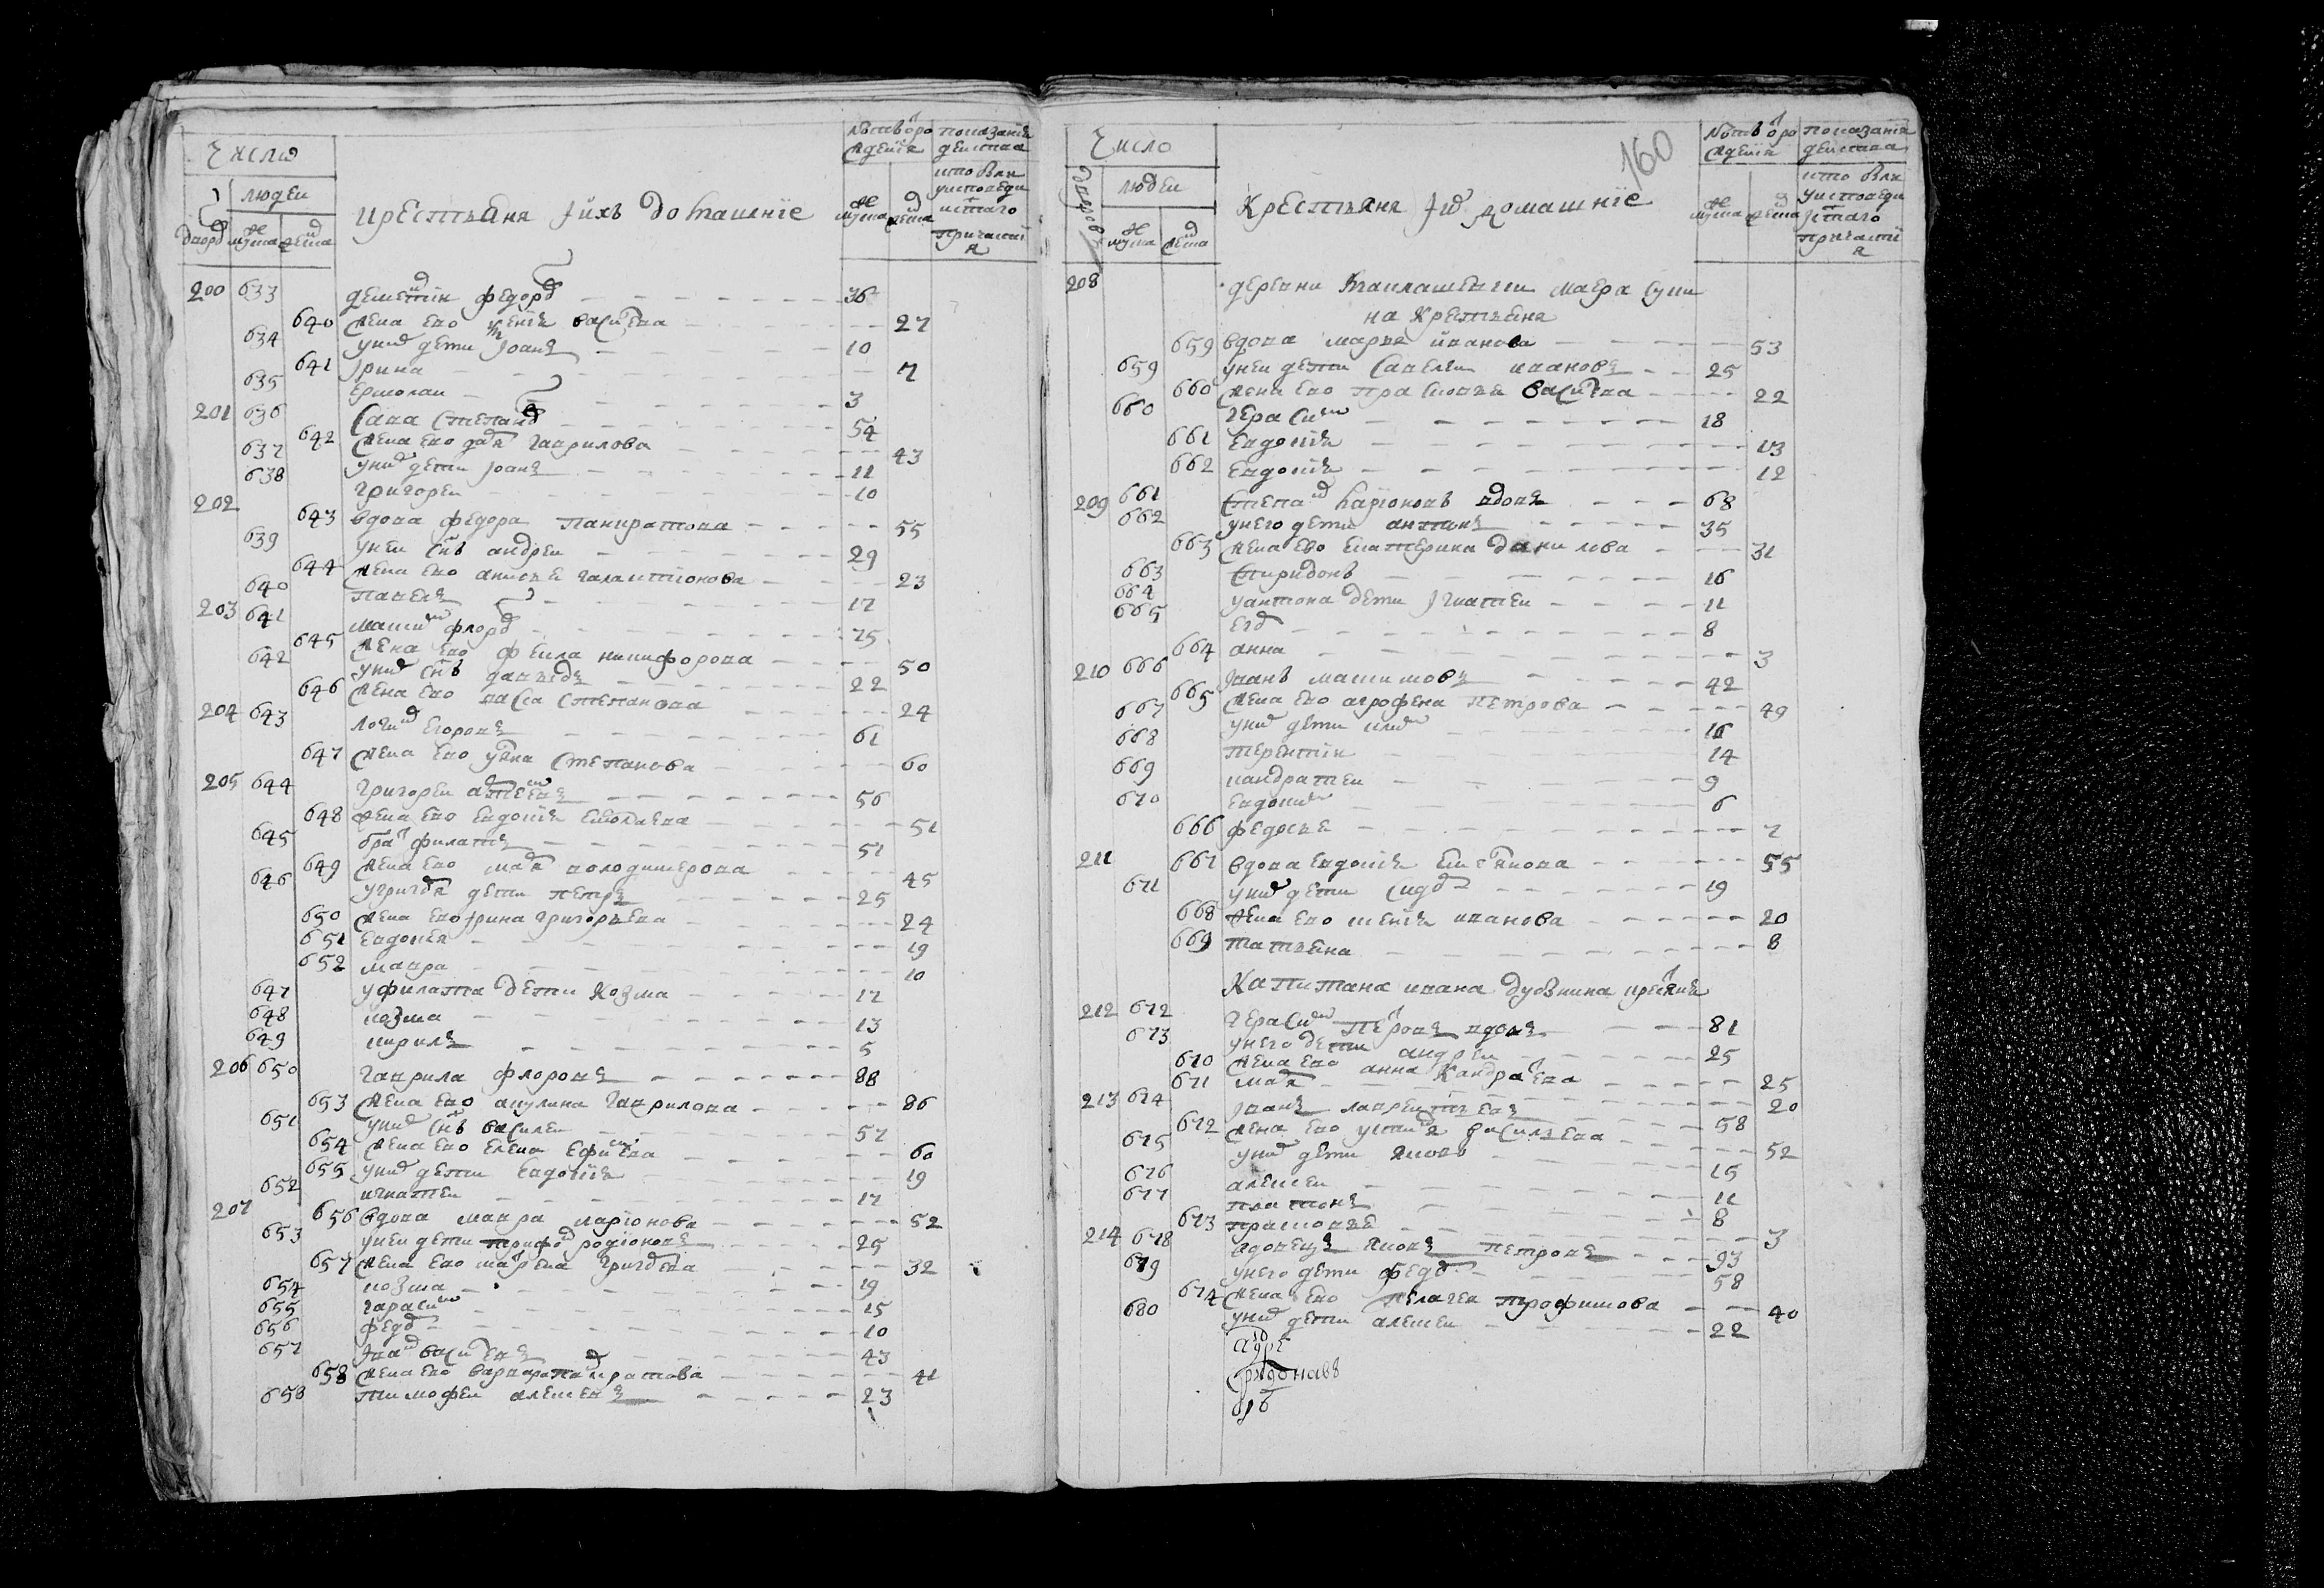 Число
людеи
крестьяня и ихъ домашние
лѣтъ ро
ждения
показания
кто былъ
у исповеди
и с̃таго
причасти
я
200 633 Дементии Федоро 36
640 жена ево Ксения Васи҆ева 27
634 у нихъ дети Иоанъ 10
641 Ирина 7
635 Ермолаи 3
201 636 Сава Степано 54
642 жена ево Гаврилова 43
637 у нихъ дети Иоанъ 11
638 Григореи 10
202 643 вдова Федора Панкратова 55
639 у неи с̃нъ Андреи 29
644 жена ево Анисья Галактионова 23
640 Павелъ 17
203 641 Максим Флоро 75
645 жена ево Фекла Никифорова 50
642 у нихъ с̃нъ Давыдъ 22
646 жена ево Васса Степанова 24
204 643 Логин Егоровъ 61
647 жена ево Ул̾яна Степанова 60
205 644 Григореи 56
648 жена ево Евдокия 51
645 брат Филатъ 51
649 жена ево Мар̾я Володимерова 45
646 у Григор̾я дети Петръ 25
650 жена ево Ирина Григорьева 24
651 Евдокия 19
652 Мавра 10
647 у Филата дети Козма 17
648 Козма 13
649 Кирилъ 5
206 650 Гаврила Флоровъ 88
653 жена ево Акулина Гаврилова 86
651 у нихъ с̃нъ Василеи 57
654 жена ево Елена Ефимева 60
655 у нихъ дети Евдокия 19
652 Игнатеи 17
207 656 вдова Мавра Ларионова 52
653 у неи дети Трифо Родионовъ 25
657 жена ево Марена Григорева 32
654 Козма 19
655 Гарасим 15
656 Федо 10
657 Иван Васи҆евъ 43
658 жена ево Варвара Панкратова 41
658 Тимофеи Алексеевъ 23
160
Число
дворовъ
людеи
Крестьяня и их домашние
лѣтъ ро
ждения
показания
кто былъ
у исповеди
и с̃таго
причасти
я
208 деревни маеора
на крестьяня
659 вдова Марья Иванова 53
659 у неи дети Савелеи Ивановъ 25
660 жена ево Прасковья Васи҆ева 22
660 Герасим 18
661 Евдокия 13
662 Евдокия 12
209 661 Степан Ларионовъ вдовъ 68
662 у него дети Антонъ 35
663 жена ево Екатерина Данилова 31
663 Спиридонъ 16
664 у Антона дети Игнатеи 11
665 Его 8
664 Анна 3
210 666 Иванъ Максимовъ 42
665 жена ево Агрофена Петрова 49
667 у нихъ дети 16
668 Терентии 14
669 Кандратеи 9
670 Евдоким 6
666 Федосья 7
211 667 вдова Евдокия 55
671 у нихъ дети Сидо 19
668 жена ево Ксения Иванова 20
669 Татьяна 8
Капитана Ивана Дубнина кре҆яня
212 672 Герасим Петровъ вдовъ 81
673 у него дети Андреи 25
670 жена ево Анна Кандратева 25
671 Мар̾я 20
213 674 Иванъ Лаврентьевъ 58
672 жена ево Устин̾я Васильева 52
675 у нихъ дети Яковъ 15
676 Алексеи 11
677 Платонъ 8
673 Прасковья 3
214 678 вдовецъ Яковъ Петровъ 93
679 у него дети Федо 58
674 жена ево Пелагея Трофимова 40
680 у нихъ дети Алексеи 22